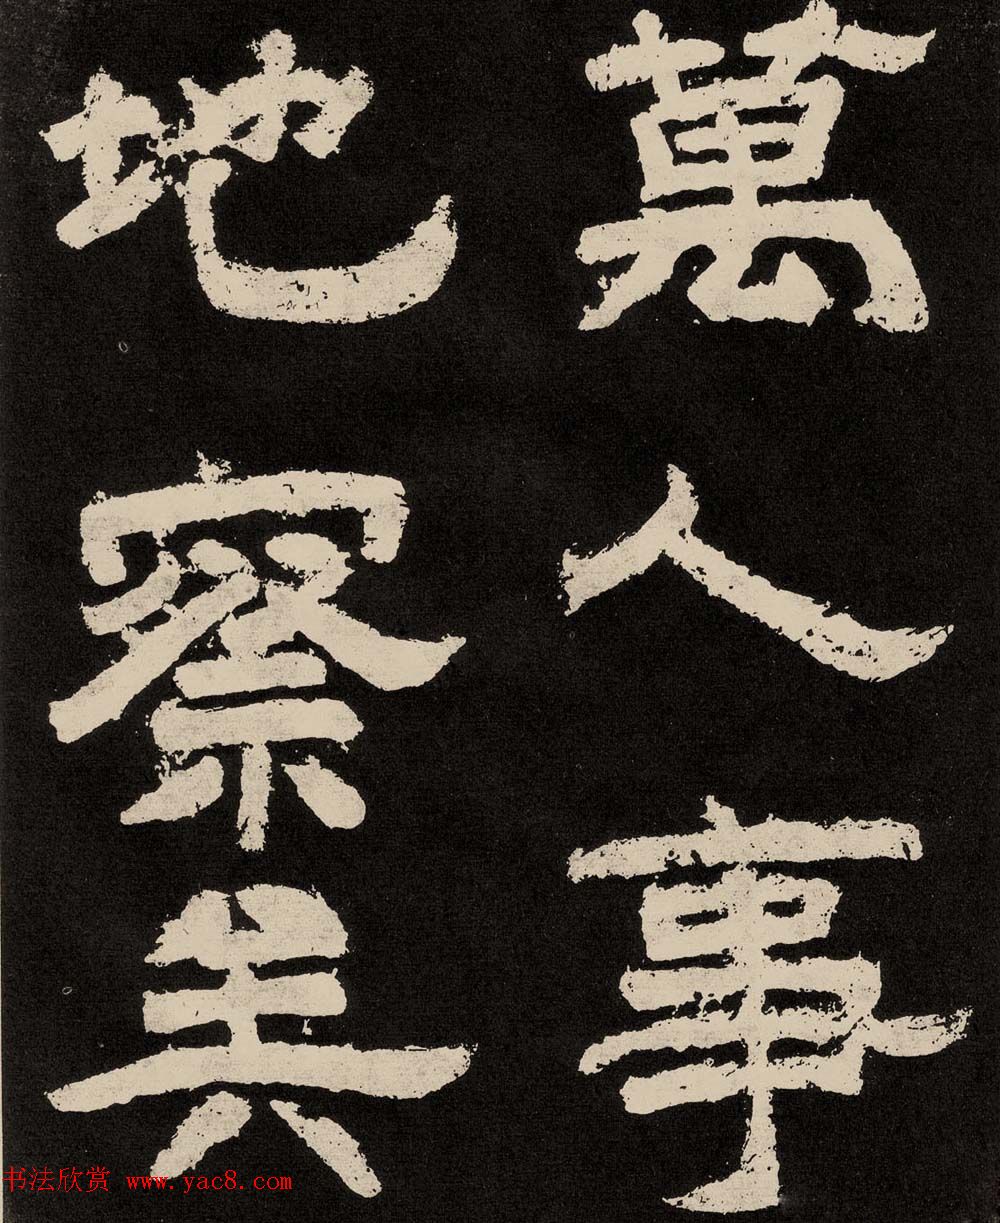 萬人事
地察
书法欣赏 www.yac8.com